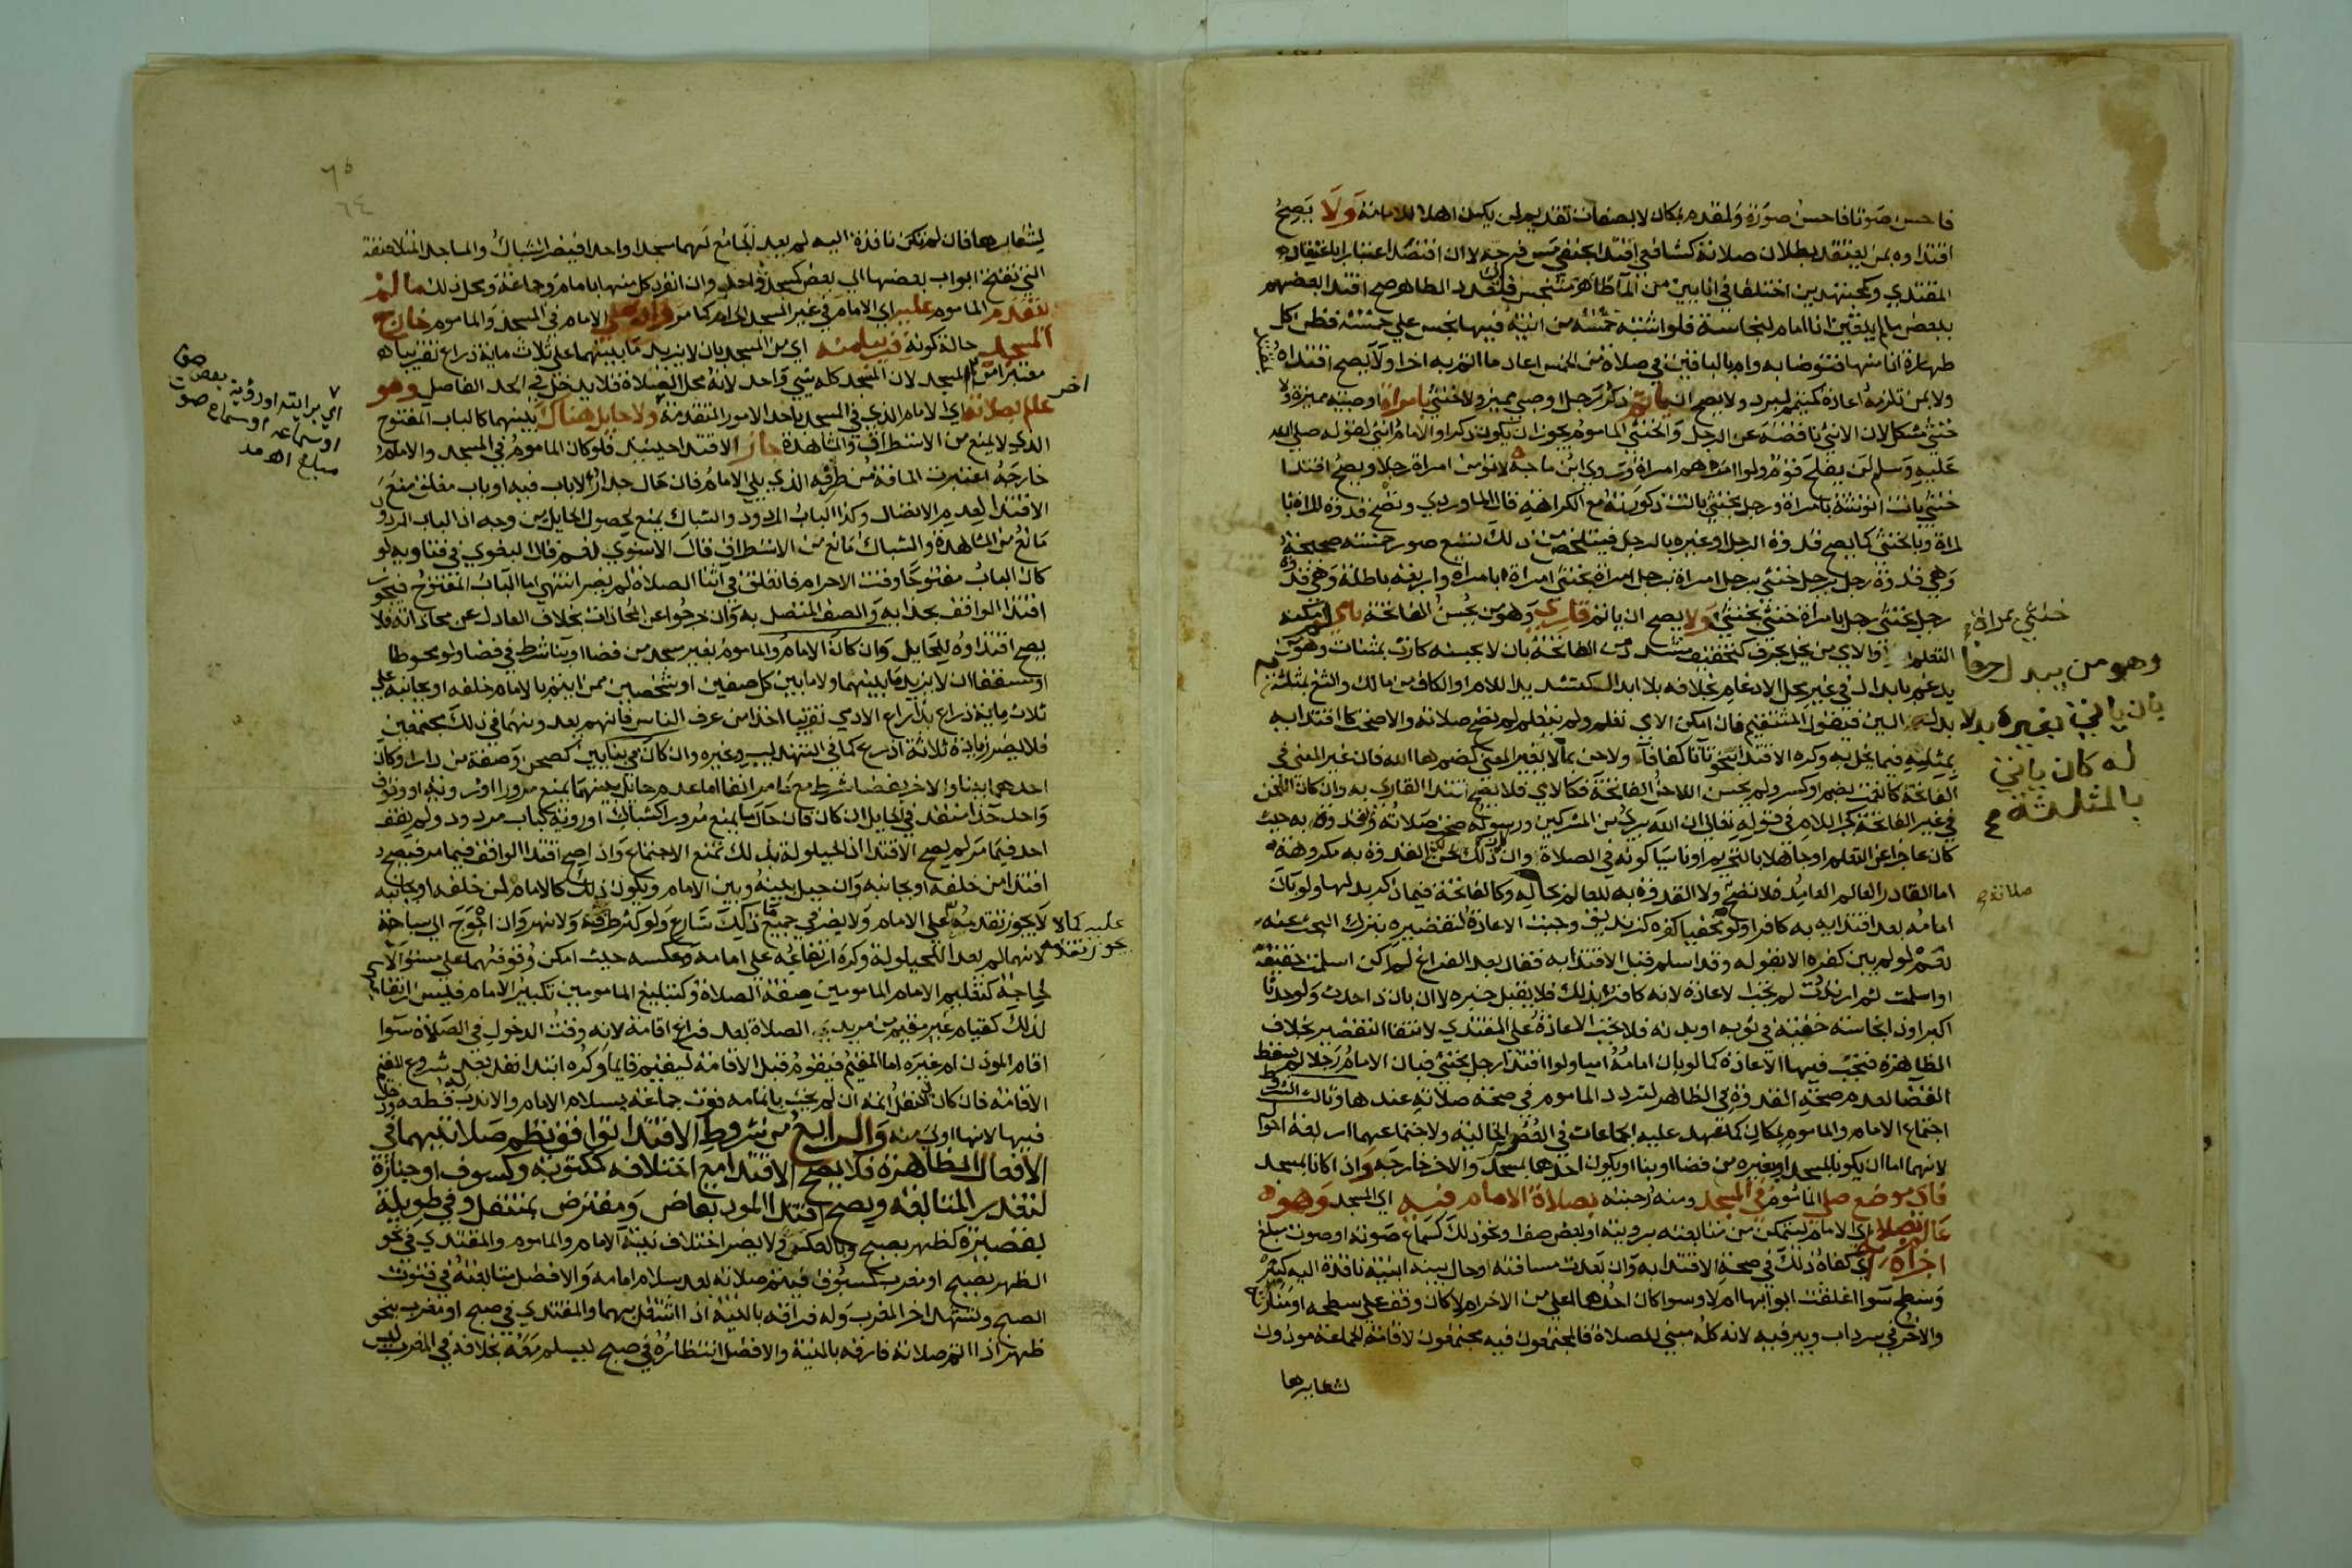 فاحسن صوتا فاحسن صورة ولمقدم بمكان لا بصفات تقديم لمن يكون اهلا للامامة ولا يصح
اقتداوه بمن يعتقد بطلان صلاته كشافعي اقتدا بحنفي مس فرجه لا ان افتصد اعتبارا باعتقاد
المقتدي وكمجتهدين اختلفا في اناين من الما طاهر ومتنجس فان تعدد الطاهر صح اقتدا بعضهم
ببعض ما لم يتعين انا امام لنجاسة فلو اشتبه خمسة من انية فيها نجس علي خمسة فظن كل
طهارة انا منها فتوضا به وام بالباقين في صلاة من الخمس اعاد ما ائتم به اخرا ولا يصح اقتداه
ولا بمن تلزمه اعادة كمتيمم لبرد ولا يصح ان ياتم ذكر رجل او صبي مميز ولا خنثي بامراة او صبية مميزة ولا
خنثي مشكل لان الانثي ناقصة عن الرجل والخنثي الماموم يجوز ان يكون ذكرا والامام انثي لقوله صلي الله
عليه وسلم لن يفلح قوم ولوا امرهم امراة وروي ابن ماجه لا تؤمن امراة رجلا ويصح اقتدا
خنثي بانت انوثته بامراة ورجل بخنثي بانت ذكورته مع الكراهة قاله الماوردي وتصح قدوة المراة با
لمراة وبالخنثي كما يصح قدوة الرجل وغيره بالرجل فيتلخص من ذلك تسع صور خمسة صحيحة
وهي قدوة رجل برجل خنثي برجل امراة برجل امراة بخنثي امراة بامراة واربعة باطلة وهي قدوة
رجل بخنثي رجل بامراة خنثي بخنثي ولا يصح ان ياتم قاري وهو من يحسن الفاتحة بامي امكنه
خنثي بمراة
التعلم او لا والامي من يخل بحرف كتخفيف مشدد من الفاتحة بان لا يحسنه كارت بمثناة وهو من
وهو من يبدل حرفا
يدغم بابدال في غير محل الادغام بخلافه بلا ابدال كتشديد اللام او الكاف من مالك والثغ بمثلثة
بان ياتي بغيره بدلا
بدل السين فيقول المثتقيم فان امكن الامي تعلم ولم يتعلم لم تصح صلاته والا صحت كاقتدايه
له كان ياتي
بمثله فيما يخل به وكره الاقتدا بنحو تاتا كفافا ولاحن بما لا يغير المعني كضم هاء الله فان غير المعني في
بالمثلثة
الفاتحة كانعمت بضم او كسر ولم يحسن اللاحن الفاتحة فكامي فلا يصح اقتدا القاري به وان كان اللحن
في غير الفاتحة كجر اللام في قوله تعالي ان الله بري من المشركين ورسوله صحت صلاته وقدوة به حيث
كان عاجزا عن التعلم او جاهلا بالتحريم او ناسيا كونه في الصلاة وان ذلك لحن لكن القدوة به مكروهة
اما القادر العالم العامد فلا تصح ولا القدوة به للعالم بحاله وكالفاتحة فيما ذكر بدلها ولو بان
صلاته
امامه بعد اقتدايه به كافرا ولو مخفيا كفره كزنديق وجبت الاعادة لتقصيره بترك البحث عنه
نعم لو لم يبن كفره الا بقوله وقد اسلم قبل الاقتدا به فقال بعد الفراغ لم اكن اسلمت حقيقة
او اسلمت ثم ارتددت لم تجب الاعادة لانه كافر بذلك فلا يقبل خبره لا ان بان ذا حدث ولو حدثا
اكبر او ذا نجاسة خفية في ثوبه او بدنه فلا تجب الاعادة علي المقتدي لانتفا التقصير بخلاف
الظاهرة فتجب فيها الاعادة كما لو بان امامه اميا ولو اقتدا رجل بخنثي فبان الامام رجلا لم يسقط
القضا لعدم صحة القدوة في الظاهر لتردد الماموم في صحة صلاته عندها وثالث الشروط
اجتماع الامام والماموم بمكان كما عهد عليه الجماعات في العصر الخالية ولاجتماعهما اربعة احوال
لانهما اما ان يكونا بمسجد او بغيره من فضا او بنا او يكون احدهما بمسجد والاخر خارجه واذا كانا بمسجد
فاي موضع صلي الماموم في المسجد ومنه رحبته بصلاة الامام فيه اي المسجد وهو
عالم بصلاته اي الامام ليتمكن من متابعته برويته او بعض صف او نحو ذلك كسماع صوته او صوت مبلغ
اجزاه اي كفاه ذلك في صحة الاقتدا به وان بعدت مسافته او حال بينه ابنية نافذة اليه كبير
وسطح سوا اغلقت ابوابها ام لا وسوا كان احدهما اعلي من الاخر ام لا كان وقف علي سطحه او منارته
والاخر في سرداب وبير فيه لانه كله مبني للصلاة فالمجتمعون فيه مجتمعون لاقامة الجماعة مودون
لشعايرها
٦٥
٦٤
لشعايرها فان لم تكن نافذة اليه لم يعد الجامع لهما مسجدا واحدا فيضر الشباك والمساجد المتلاصقة
التي تفتح ابواب بعضها الي بعض كمسجد واحد وان انفرد كل منها بامام وجماعة ومحل ذلك ما لم
يتقدم الماموم عليه اي الامام في غير المسجد الحرام كما مر وان صلي الامام في المسجد والماموم خارج
المسجد حالة كونه قريبا منه اي من المسجد بان لا يزيد ما بينهما علي ثلاث ماية ذراع تقريبا
معتبرا من اخر المسجد لان المسجد كله شي واحد لانه محل للصلاة فلا يدخل في الحد الفاصل وهو
اي برايته او روية بعض صف
او سماعه او سماع صوت
مبلغ
عالم بصلاته اي الامام الذي في المسجد باحد الامور المتقدمة ولا حايل هناك بينهما كالباب المفتوح
الذي لا يمنع من الاستطراق والمشاهدة جاز الاقتدا حينيذ فلو كان الماموم في المسجد والامام
خارجه اعتبرت المسافة من طرفه الذي يلي الامام فان حال جدار لا باب فيه او باب مغلق منع
الاقتدا لعدم الاتصال وكذا الباب المردود والشباك يمنع لحصول الحايل من وجه اذ الباب المردود
مانع من المشاهدة والشباك مانع من الاستطراق قال الاسنوي نعم قال البغوي في فتاويه لو
كان الباب مفتوحا وقت الاحرام فانغلق في اثنا الصلاة لم يضر انتهي اما الباب المفتوح فيجوز
اقتدا الواقف بحذايه والصف المتصل به وان خرجوا عن المحاذات بخلاف العادل عن محاذاته فلا
يصح اقتداوه للحايل وان كان الامام والماموم بغير مسجد من فضا او بنا شرط في فضا ولو محوطا
او مسقفا ان لا يزيد ما بينهما ولا ما بين كل صفين او شخصين ممن ايتم بالامام خلفه او بجانبه علي
ثلاث ماية ذراع بذراع الادمي تقريبا اخذا من عرف الناس فانهم يعدونهما في ذلك مجتمعين
فلا يضر زيادة ثلاثة اذرع كما في التهذيب وغيره وان كان في بناين كصحن وصفة من دار او كان
احدهما ببنا والاخر بفضا شرط مع ما مر انفا اما عدم حايل بينهما يمنع مرورا او روية او وقوف
واحد حذا منفذ في الحايل ان كان فان حال ما يمنع مرورا كشباك او روية كباب مردود ولم يقف
احد فيما مر لم يصح الاقتدا اذ الحيلولة بذلك تمنع الاجتماع واذا صح اقتدا الواقف فيما مر فيصح
اقتدا من خلفه او بجانبه وان حيل بينه وبين الامام ويكون ذلك كالامام لمن خلفه او بجانبه
عليه كما لا
لا يجوز تقدمه علي الامام ولا يضر في جميع ما ذكر شارع ولو كثر طروقه ولا نهر وان احوج الي سباحة
يجوز تقدمه
لانهما لم يعدا للحيلولة وكره ارتفاعه علي امامه وعكسه حيث امكن وقوفهما علي مستو الا
لحاجة كتعليم الامام المامومين صفة الصلاة وكتبليغ المامومين تكبير الامام فيسن ارتفاعهما
لذلك كقيام غير مقيم من مريدي الصلاة بعد فراغ اقامة لانه وقت الدخول في الصلاة سوا
اقام الموذن ام غيره اما المقيم فيقوم قبل الاقامة ليقيم قايما وكره ابتدا نفل بعد شروع المقيم
الاقامة فان كان في النفل اتمه ان لم يخش باتمامه فوت جماعة بسلام الامام والا ندب له قطعه ودخل
فيها لانها اولي منه والرابع من شروط الاقتدا توافق نظم صلاتيهما في
الافعال الظاهرة فلا يصح الاقتدا مع اختلافه كمكتوبة وكسوف او جنازة
لتعذر المتابعة ويصح اقتدا المود بقاض ومفترض بمتنفل وفي طويلة
بقصيرة كظهر بصبح وبالعكس ولا يضر اختلاف نية الامام والماموم والمقتدي في نحو
الظهر بصبح او مغرب كمسبوق فيتم صلاته بعد سلام امامه والافضل متابعته في قنوت
الصبح وتشهد اخر المغرب وله فراقه بالنية اذا اشتغل بهما والمقتدي في صبح او مغرب بنحو
ظهر اذا اتم صلاته فارقه بالنية والافضل انتظاره في صبح ليسلم معه بخلافه في المغرب ليس